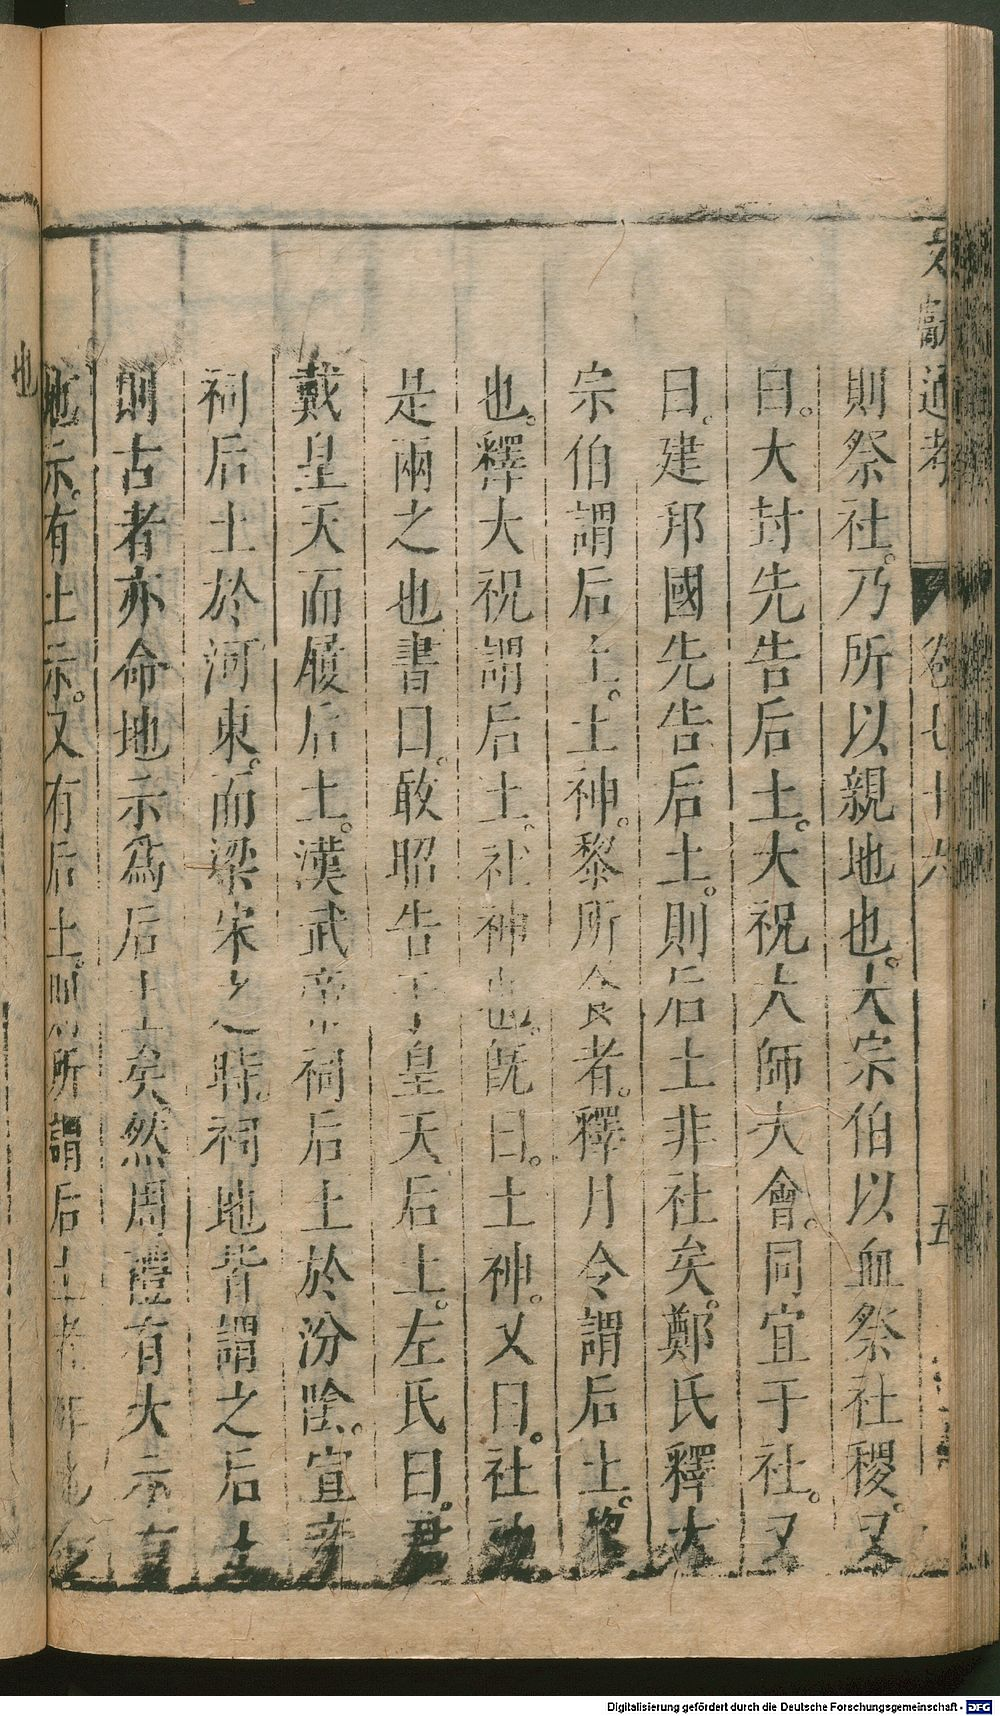 文獻通考 卷七十六 五
則祭社。乃所以親地也。大宗伯以血祭社稷。又
曰。大封先告后土。大祝大師大會。同宜于社。又
曰。建邦國先告后土。則后土非社矣。鄭氏釋大
宗伯謂后土。土神。黎所食者。釋月令謂后土。黎
也。釋大祝謂后土。社神也。旣曰。土神。又曰。社神
是兩之也書曰。敢昭告于皇天后土。左氏曰。君
戴皇天而履后土。漢武帝祠后土於汾陰。宣帝
祠后土於河東。而梁宋之時。祠地皆謂之后土
則古者亦命地示為后土矣。然周禮有大示有
地示。有土示。又有后土。則所謂后土者非地
也
Digitalisierung gefördert durch die Deutsche Forschungsgemeinschaft - DFG